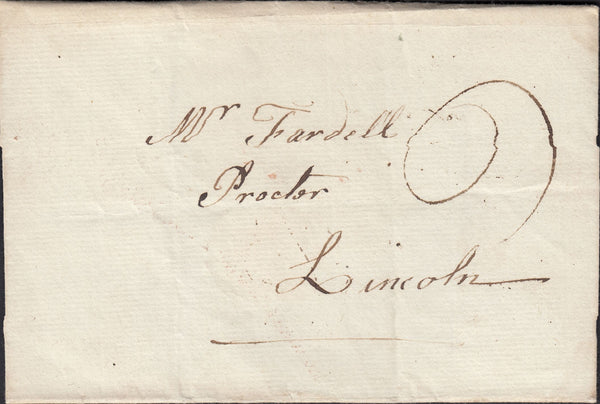 Mr Fardell
Proctor
Lincoln